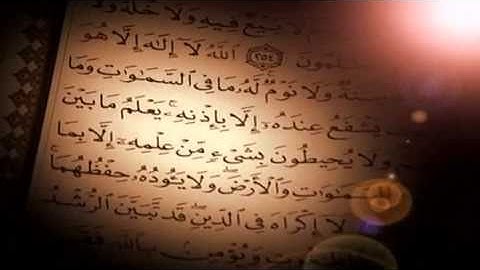 بَيْعٌ فِيهِ وَلَا خُلَّةٌ وَلَا
٢٥٤ ٱللَّهُ لَآ إِلَٰهَ إِلَّا هُوَ
سِنَةٌ وَلَا نَوْمٌ لَّهُۥ مَا فِى ٱلسَّمَٰوَٰتِ وَمَا
يَشْفَعُ عِندَهُۥٓ إِلَّا بِإِذْنِهِۦ ۚ يَعْلَمُ مَا بَيْنَ
وَلَا يُحِيطُونَ بِشَىْءٍ مِّنْ عِلْمِهِۦٓ إِلَّا بِمَا
ٱلسَّمَٰوَٰتِ وَٱلْأَرْضَ ۖ وَلَا يَـُٔودُهُۥ حِفْظُهُمَا ۚ
لَآ إِكْرَاهَ فِى ٱلدِّينِ ۖ قَد تَّبَيَّنَ ٱلرُّشْدُ
وَيُؤْمِنۢ بِٱللَّهِ